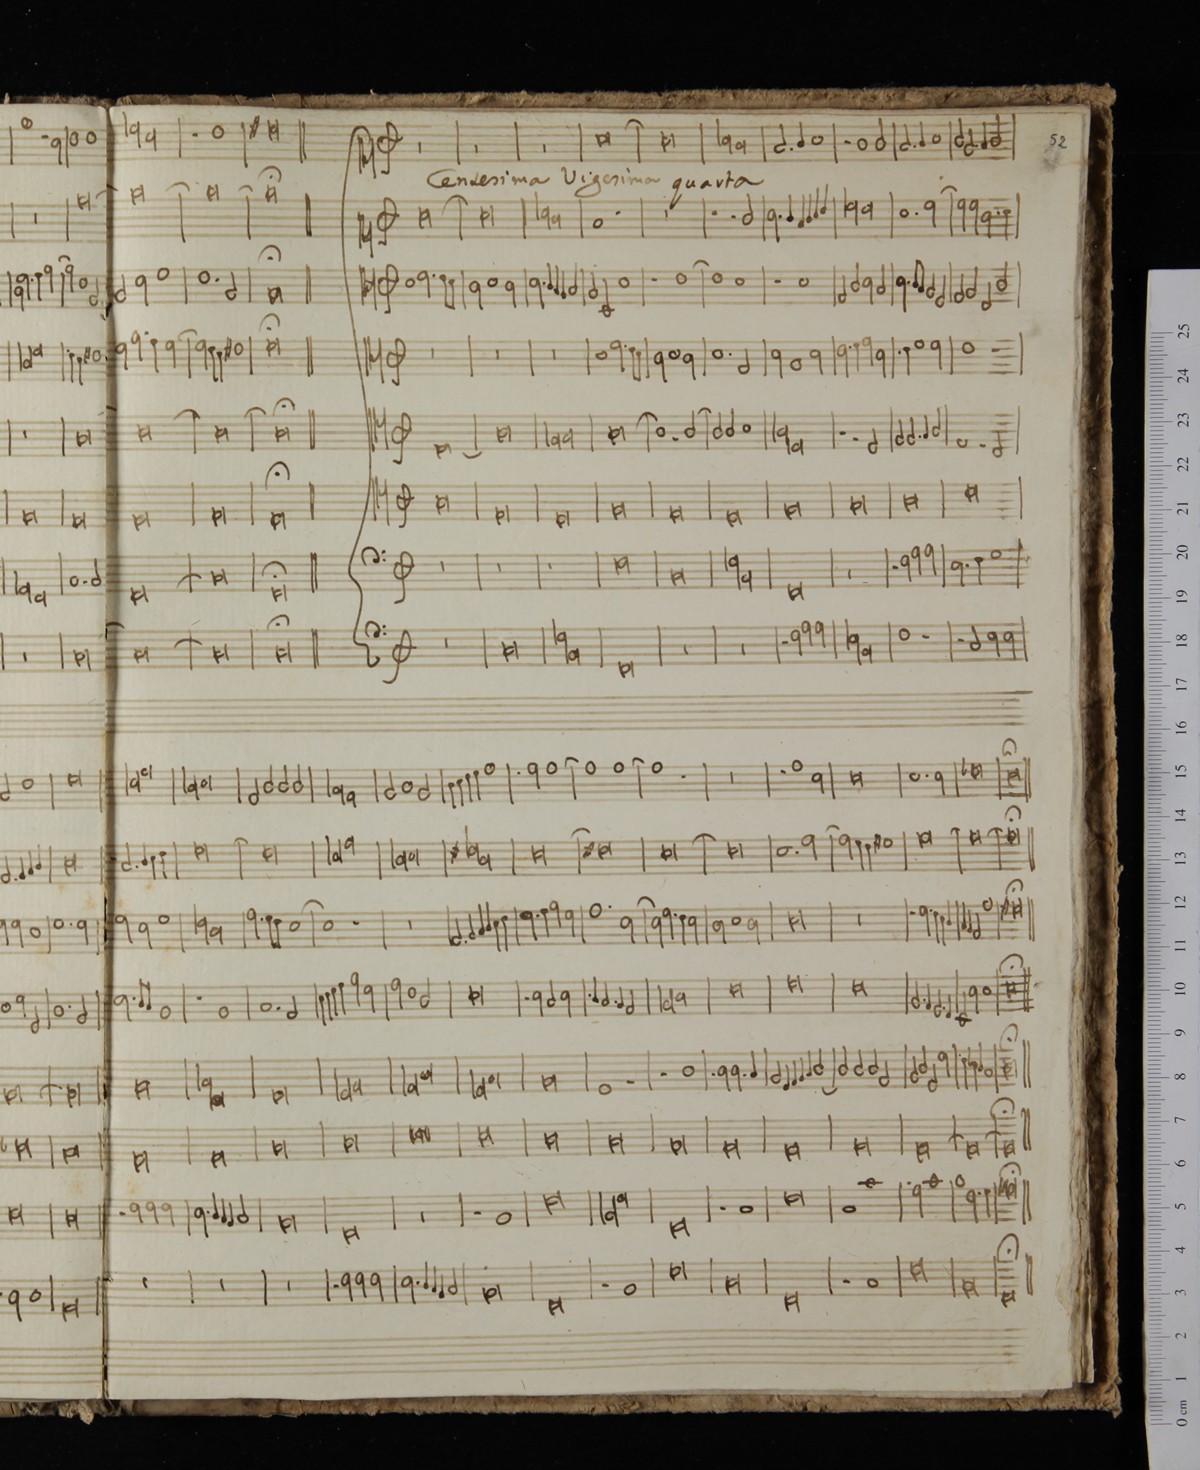 52
Centesima Vigesima quarta
25
24
23
22
21
20
19
18
17
16
15
14
13
12
11
10
9
8
7
6
5
4
3
2
1
0 cm